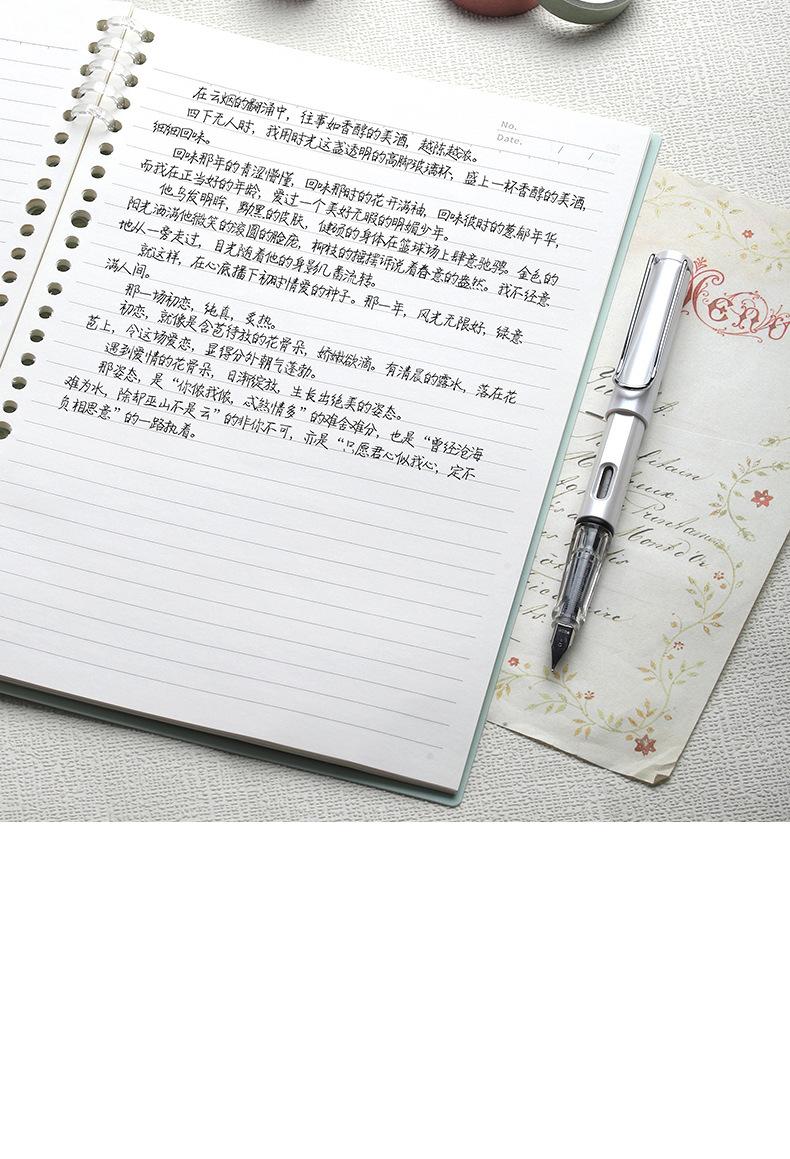 No.
Date. / /
在云烟的翻涌中，往事如香醇的美酒，越陈越浓。
四下无人时，我用时光这盏透明的高脚玻璃杯，盛上一杯香醇的美酒，
细细回味。
回味那年的青涩懵懂，回味那时的花开满袖，回味彼时的葱郁年华，
而我在正当好的年龄，爱过一个美好无暇的明媚少年。
他乌发明眸，黝黑的皮肤，健硕的身体在篮球场上肆意驰骋。金色的
阳光洒满他微笑的滚圆的脸庞，柳枝的摇摆诉说着春意的盎然。我不经意
地从一旁走过，目光随着他的身影几番流转。
就这样，在心底播下初时情爱的种子。那一年，风光无限好，绿意
满人间。
那一场初恋，纯真，炙热。
初恋，就像是含苞待放的花骨朵，娇嫩欲滴。有清晨的露水，落在花
苞上，令这场爱恋，显得分外朝气蓬勃。
遇到爱情的花骨朵，日渐绽放，生长出绝美的姿态。
那姿态，是“你侬我侬，忒煞情多”的难舍难分，也是“曾经沧海
难为水，除却巫山不是云”的非你不可，亦是“只愿君心似我心，定不
负相思意”的一路执着。